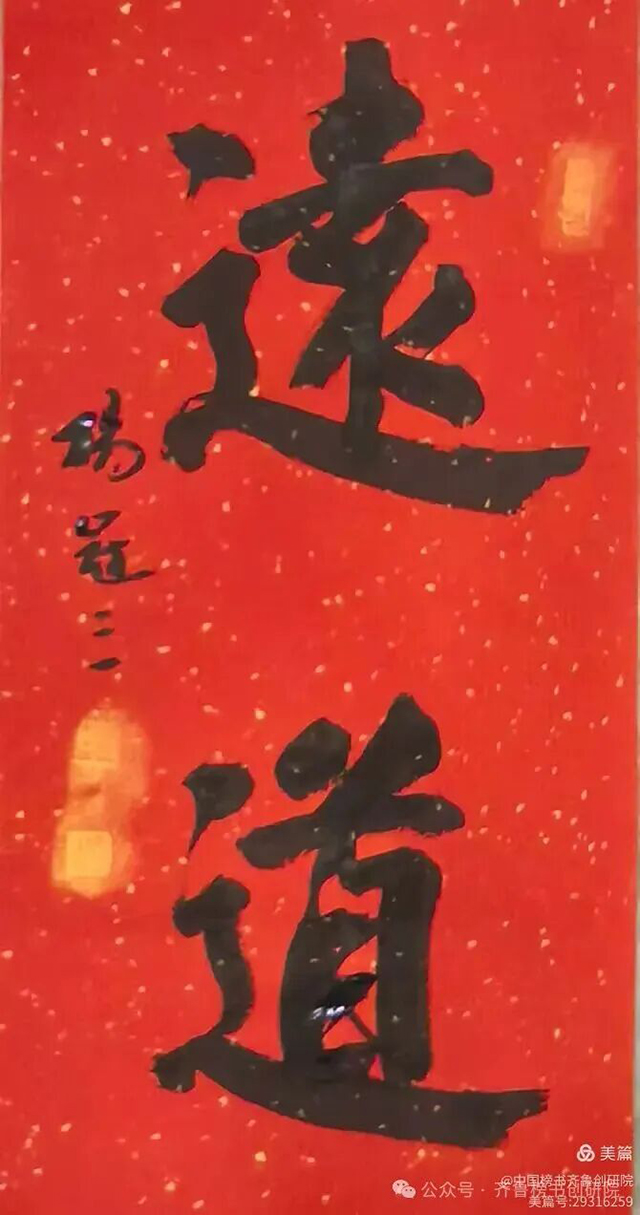 遠道
楊冠三
美篇
@中国榜书齐鲁创研院
公众号 · 齐鲁榜书创研院
美篇号:29316259